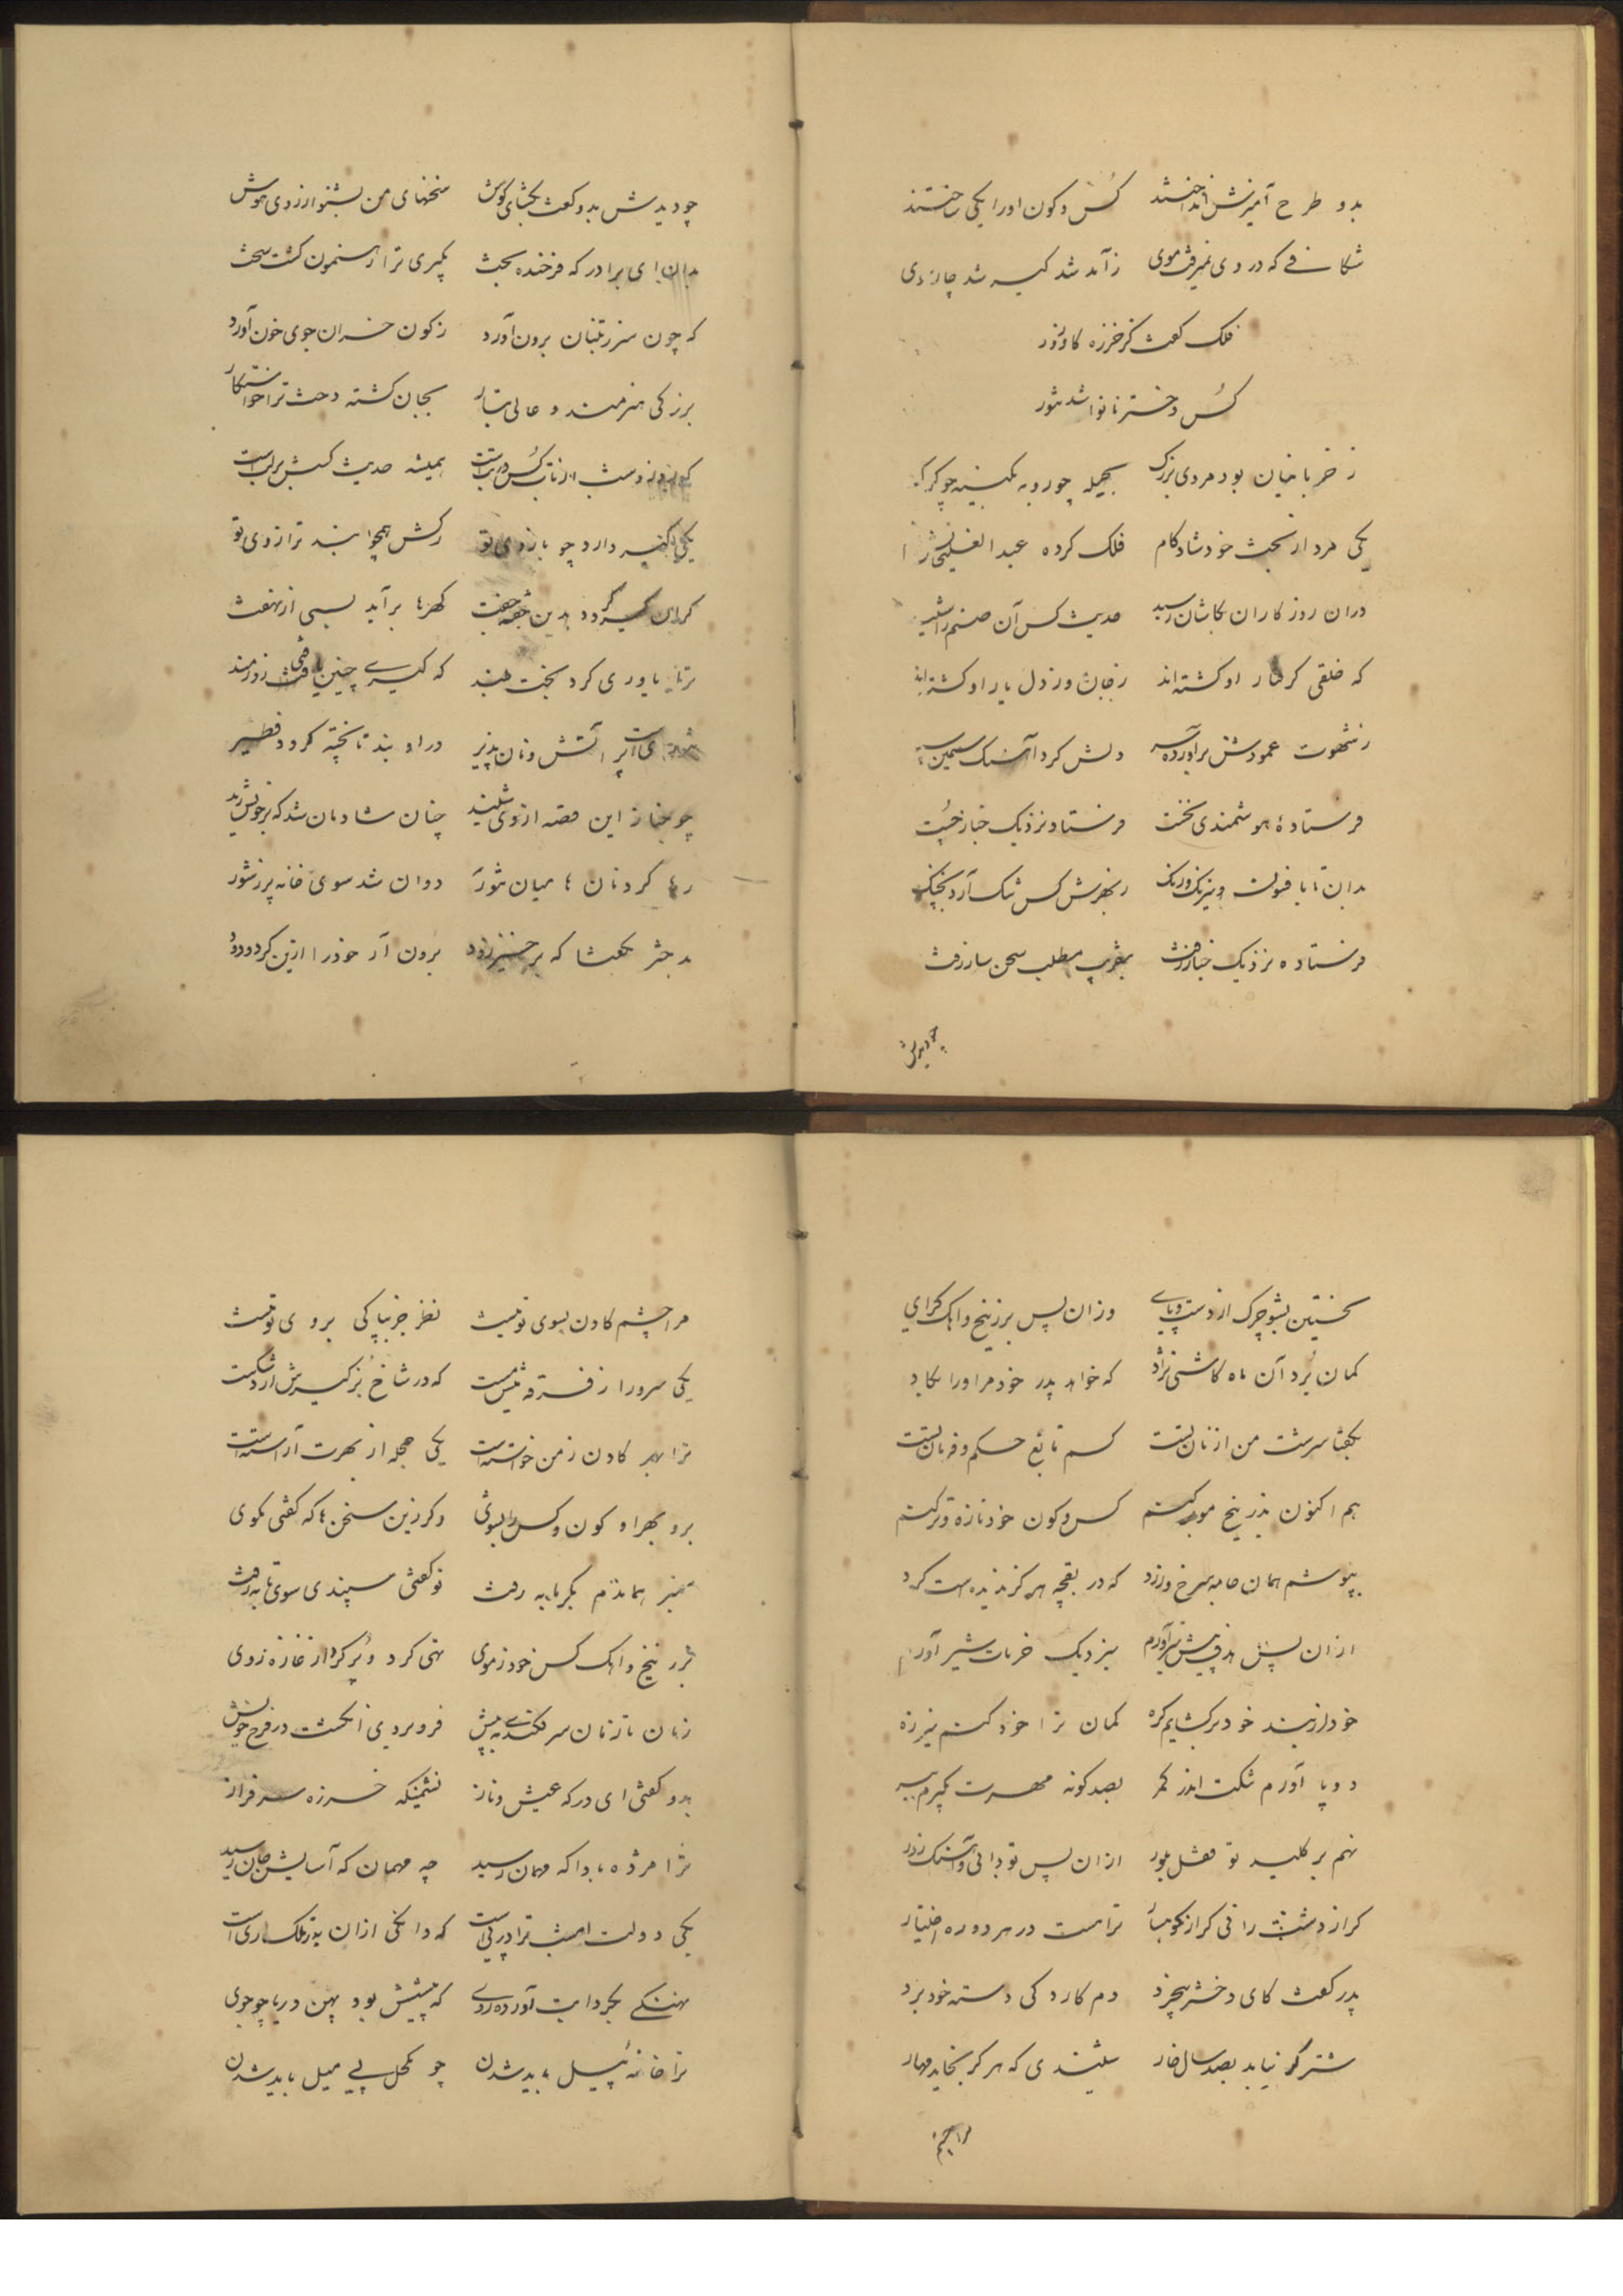 بدو طرح آمیزش انداختند کس و کون او را یکی ساختند
شکافی که در وی نمیرفت موی ز آمد شد کیر شد چار
فلک گفت کز خرزه کاو زور
کس دختر نانوا شد تنور
ز خربا خیان بود مردی بزرگ بحیله چو روبه بکینه چو گرک
یکی مرد از بخت خود شادکام فلک کرده عبدالغنیش نام
دران روزکاران بکاشان رسید حدیث کس آن صنم را شنید
که خلقی کرفتار او کشته‌اند ز جان و ز دل یار او کشته‌اند
ز شهوت عمودش برآورد سر دلش کرد آهنک سیمین
فرستادهٔ هوشمندی نخست فرستاد نزدیک خباز چست
بدان تا بافسون و نیرنک و رنک ز بهرش کس تنک آرد بچنک
فرستاده نزدیک خباز رفت بتقریب مطلب سخن ساز رفت
چو دیدش
چو دیدش بدو گفت بگشای گوش سخنهای من بشنو از روی هوش
بدان ای برادر که فرخنده بخت بکیری ترا رهنمون کشت سخت
که چون سر ز تنبان برون آورد ز کون خران جوی خون آورد
بزرکی هنرمند و عالی تبار بجان کشته دخت ترا خواستکار
همیشه حدیث کسش بر لب است
یکی کیر دارد چو بازوی تو رکش همچو بند ترازوی تو
کر این کیر کردد بدین جفت کهرها برآید بسی از نهفت
ترا یاوری کرد بخت بلند که کیری چنین یافتی زورمند
تنوری است پر آتش و نان پذیر در او بند تا پخته کردد فطیر
چو خباز این قصه از وی شنید چنان شادمان شد که بر خویش رید
رها کرد نان را میان تنور دوان شد سوی خانه پر ز شور
بدختر بگفتا که برخیز زود برون آر خود را ازین کرد و دود
نخستین بشو چرک از دست و پای وزان پس بزرنیخ و آهک کرای
کمان برد آن ماه کاشی نژاد که خواهد پدر خود مر او را بکاد
بگفتا سرشت من از نان تست کسم تابع حکم و فرمان تست
هم اکنون بزرنیخ مو بر کنم کس و کون خود تازه و تر کنم
بپوشم همان جامهٔ سرخ و زرد که در بقچه هرکز ندیده‌است کرد
ازان پس بنزدیک خربات شیر آورم
خود از بند خود برکشایم کره کمان ترا خود کنم نیز زه
دو پا آورم تنکت اندر کمر بصد کونه مهرت بکیرم ببر
نهم بر کلید تو قفل بلور ازان پس تو دانی و آهنک زور
کر از دشت رانی کر از کوهسار ترا هست در هر دو ره اختیار
پدر گفت کای دختر بیخرد دم کارد کی دسته خود برد
شتر کر نیابد بصد سال خار شنیدی که هرکز بخاید مهار
مرا چشم
مرا چشم کادن بسوی تو نیست نظر جز بپاکی بروی تو نیست
یکی سرور از فرقه تست که در شاخ بز کیرش آرد شکست
ترا بهر کادن ز من خواسته‌است یکی حجله از بهرت آراسته‌است
برو بهر او کون و کس را بشوی وکر زین سخن‌ها که کفتی مکوی
صنم هماندم بگرمابه رفت تو کفتی سپندی سوی تابه رفت
بزرنیخ و آهک کس خود ز موی تهی کرد و پر کرد از غازه روی
زمان تا زمان سر فکندی به پیش فرو بردی انکشت در فرج خویش
بدو کفتی ای درکه عیش و ناز نشیمنکه خرزه سرفراز
ترا مژده بادا که مهمان رسید چه مهمان که آسایش جان رسید
یکی دولت امشب ترا در پی است که دانکی ازان به ز ملک ری است
نهنکی بکردابت آورده روی که پیشش بود پهن دریا چو جوی
ترا خانهٔ پیل باید شدن چو مکحل پی میل باید شدن